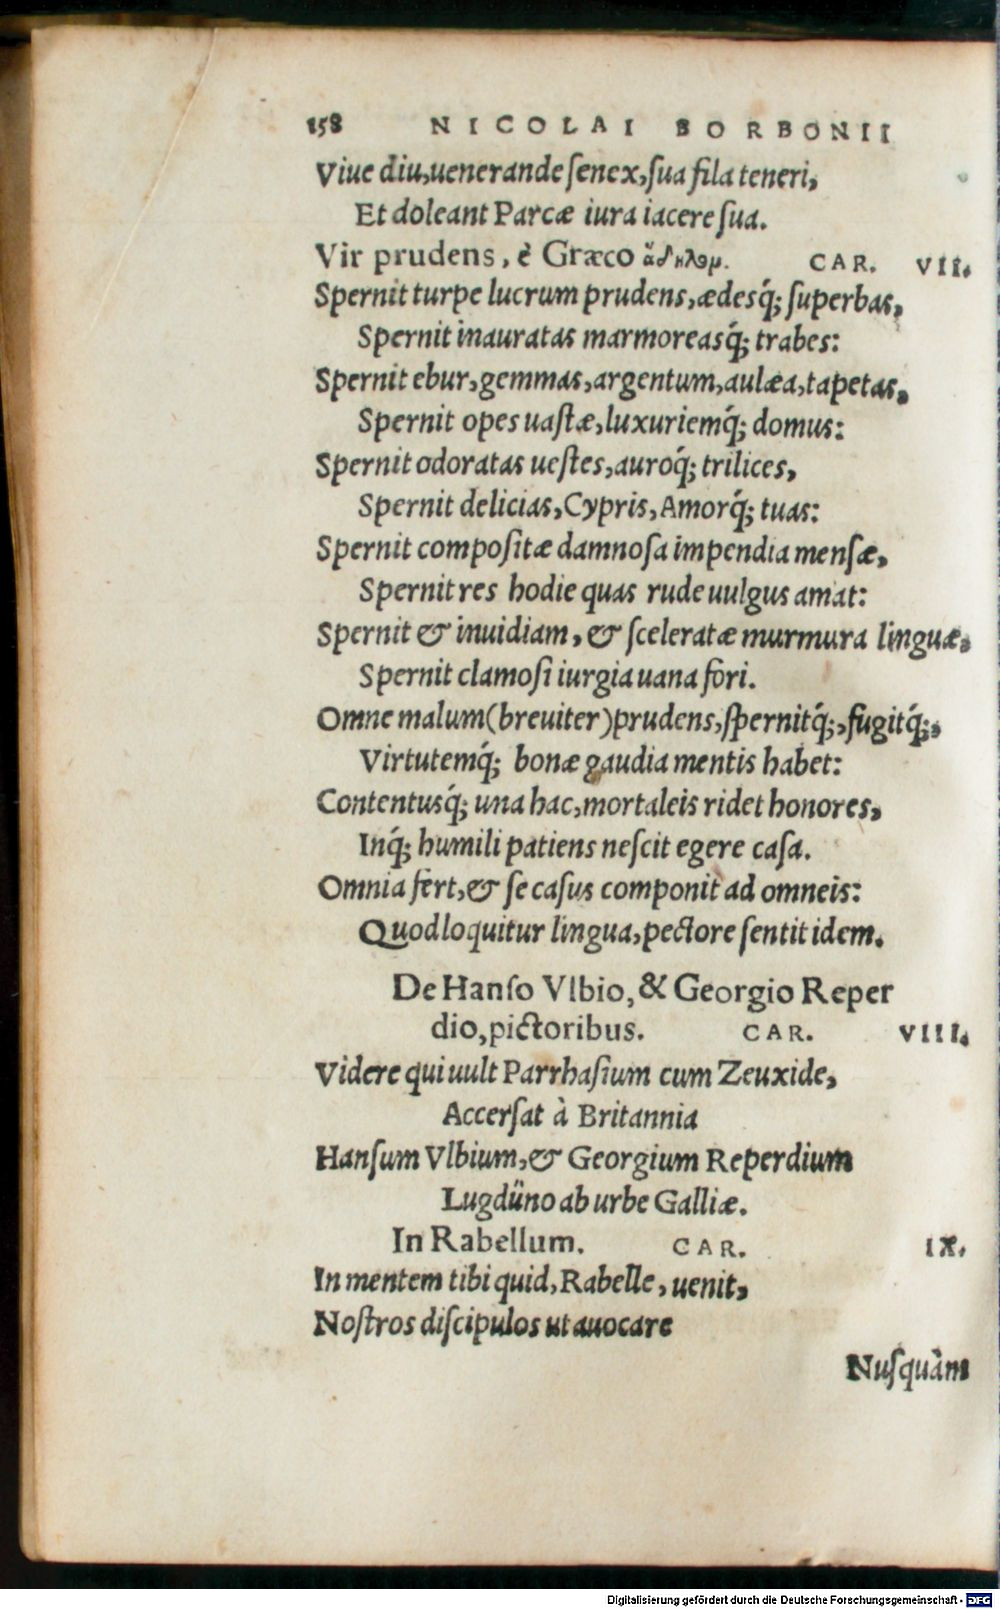 158 NICOLAI BORBONII
Viue diu, uenerande senex, sua fila teneri,
Et doleant Parcæ iura iacere sua.
Vir prudens, è Græco ἄδηλομ. CAR. VII.
Spernit turpe lucrum prudens, ædesq́; superbas,
Spernit inauratas marmoreasq́; trabes:
Spernit ebur, gemmas, argentum, aulæa, tapetas,
Spernit opes uastæ, luxuriemq́; domus:
Spernit odoratas uestes, auroq́; trilices,
Spernit delicias, Cypris, Amorq́; tuas:
Spernit compositæ damnosa impendia mensæ,
Spernit res hodie quas rude uulgus amat:
Spernit & inuidiam, & sceleratæ murmura linguæ,
Spernit clamosi iurgia uana fori.
Omne malum (breuiter) prudens, spernitq́;, fugitq́;,
Virtutemq́; bonæ gaudia mentis habet:
Contentusq́; una hac, mortaleis ridet honores,
Inq́; humili patiens nescit egere casa.
Omnia fert, & se casus componit ad omneis:
Quod loquitur lingua, pectore sentit idem.
De Hanso Vlbio, & Georgio Reper
dio, pictoribus. CAR. VIII.
Videre qui uult Parrhasium cum Zeuxide,
Accersat à Britannia
Hansum Vlbium, & Georgium Reperdium
Lugdüno ab urbe Galliæ.
In Rabellum. CAR. IX.
In mentem tibi quid, Rabelle, uenit,
Nostros discipulos ut auocare
Nusquàm
Digitalisierung gefördert durch die Deutsche Forschungsgemeinschaft - DFG